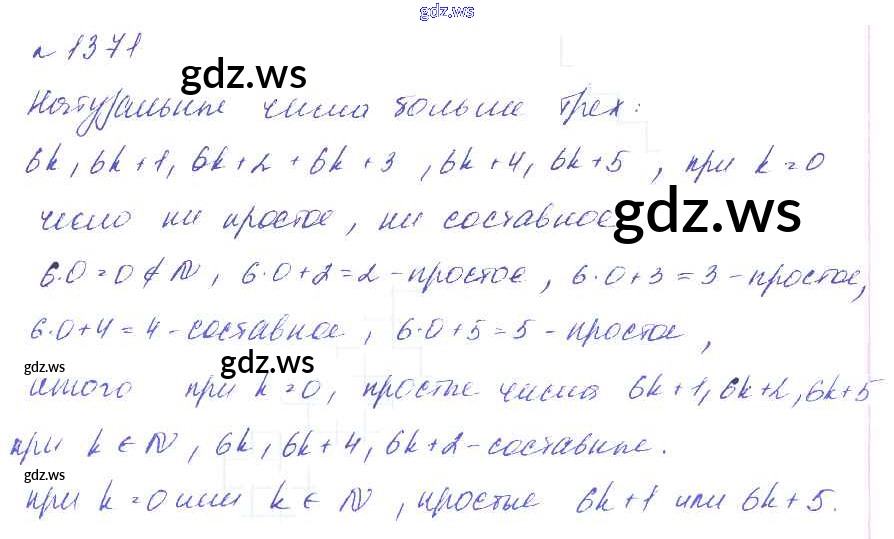 gdz.ws
№ 1371
gdz.ws
Натуральные числа больше трех:
6k, 6k+1, 6k+2 + 6k+3, 6k+4, 6k+5, при k=0
число ни простое, ни составное
gdz.ws
6·0=0∉N, 6·0+2=2-простое, 6·0+3=3-простое,
6·0+4=4-составное, 6·0+5=5-простое,
gdz.ws gdz.ws
итого при k=0, простые числа 6k+1, 6k+2, 6k+5
при k∈N, 6k, 6k+4, 6k+2-составные.
gdz.ws
при k=0 или k∈N, простые 6k+1 или 6k+5.